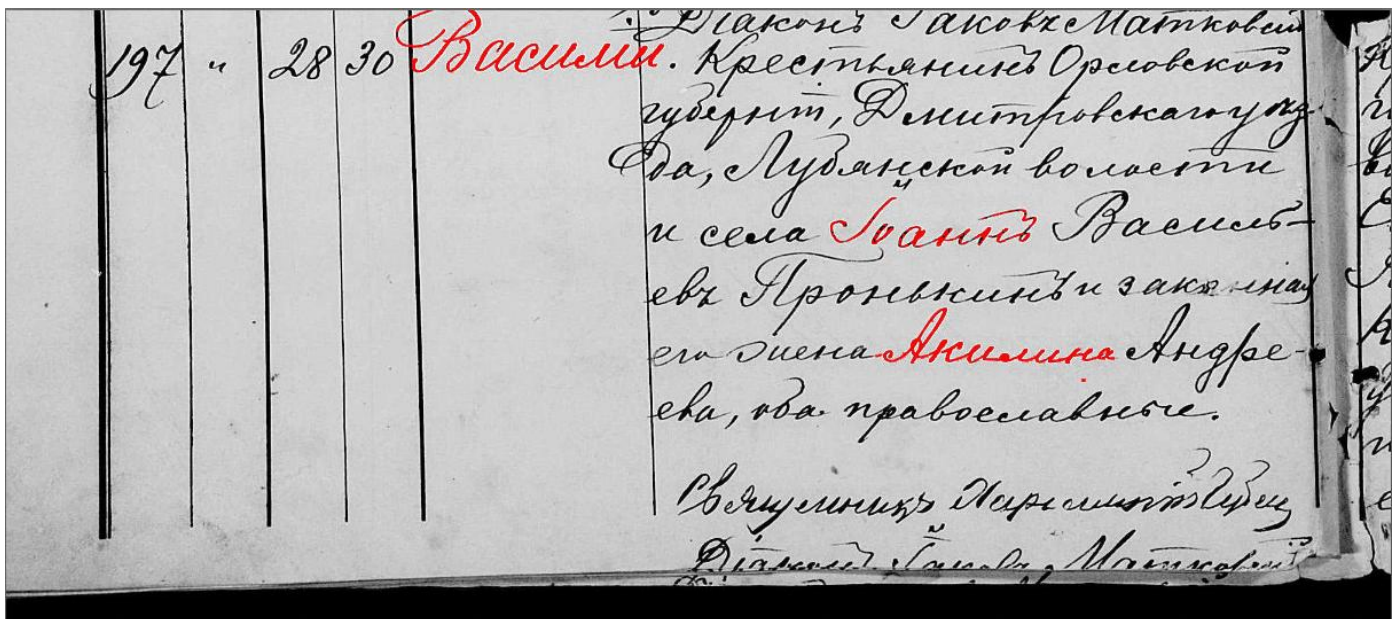 Діаконъ Іаковъ Матковскій
197 " 28 30 Василій. Крестьянинъ Орловской
губерніи, Дмитровскаго уѣз-
да, Лубянской волости
и села Іоаннъ Василь-
евъ Пронькинъ и законная
его жена Акилина Андре-
ева, оба православные.
Священникъ
Діаконъ Іаковъ Матковскій